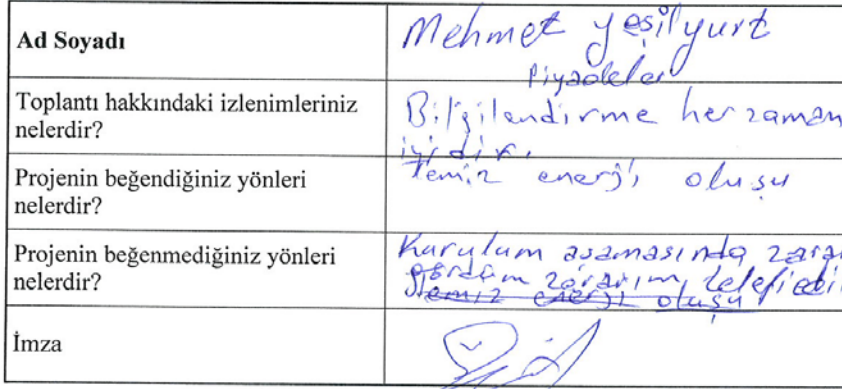 Ad Soyadı
Mehmet Yeşilyurt
Piyadeler
Toplantı hakkındaki izlenimleriniz
nelerdir?
Bilgilendirme her zaman
iyidir.
Projenin beğendiğiniz yönleri
nelerdir?
Temiz enerji oluşu
Projenin beğenmediğiniz yönleri
nelerdir?
Kurulum aşamasında zarar
gördüm zararım telefi edil
Temiz enerji oluşu
İmza